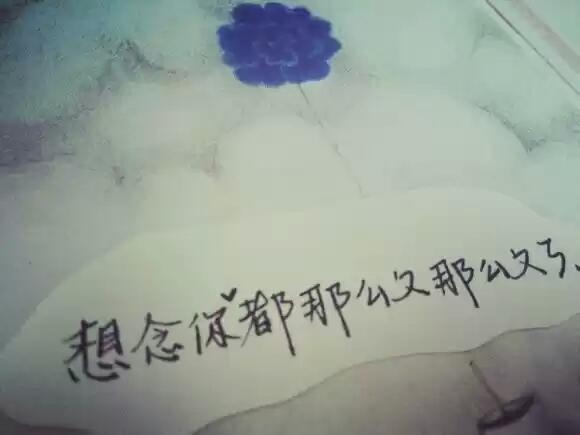 想念你都那么久那么久了